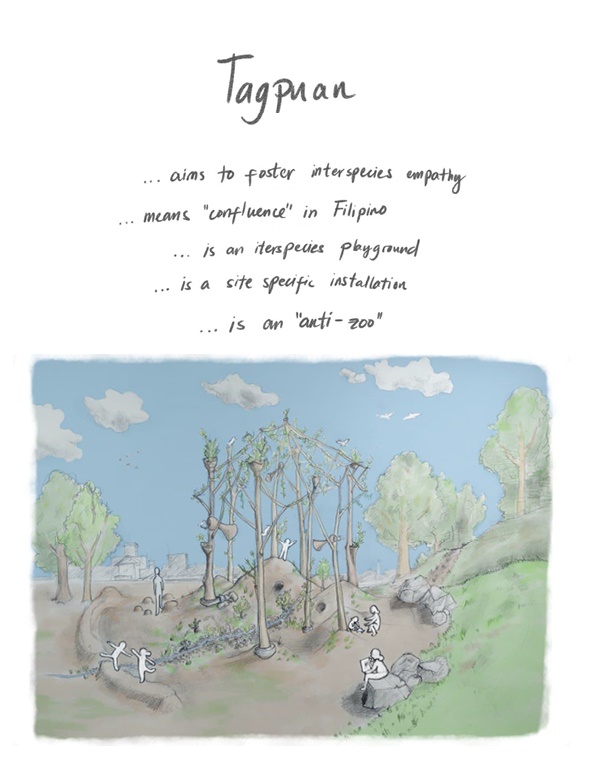 Tagpuan
... aims to foster interspecies empathy
... means "confluence" in Filipino
... is an iterspecies playground
... is a site specific installation
... is an "anti-zoo"